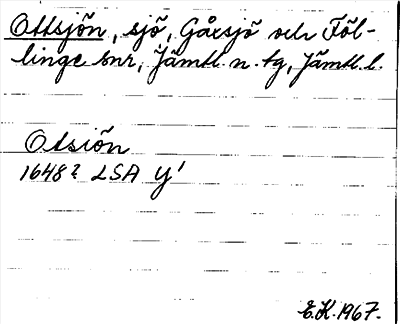 Ottsjön, sjö, Gåxsjö och Föl-
linge snr, Jämtl. n. tg, Jämtl. l.
Otsiön
1648? LSA Y1
E.K. 1967.